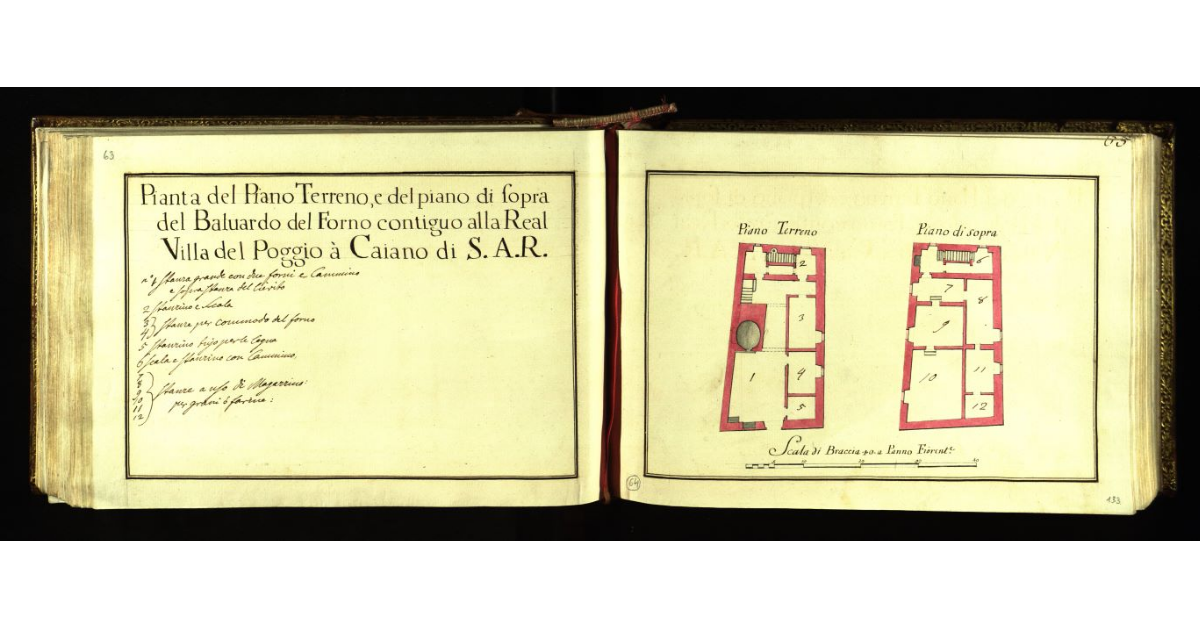 63
Pianta del Piano Terreno, e del piano di sopra
del Baluardo del Forno contiguo alla Real
Villa del Poggio à Caiano di S.A.R.
n.° 1 Stanza grande con due forni e Cammino
e sopra stanza del
2 Stanzino e Scala
3
4 Stanze per commodo del forno
5 Stanzino per le legna
6 Scala e Stanzino con Cammino
7
8
9 Stanze a uso di Magazzino
10 per grani e farine:
11
12
63
Piano Terreno
2
3
1
4
5
Piano di sopra
6
7
8
9
10
11
12
Scala di Braccia 40. a Panno Fiorent.e
64
133